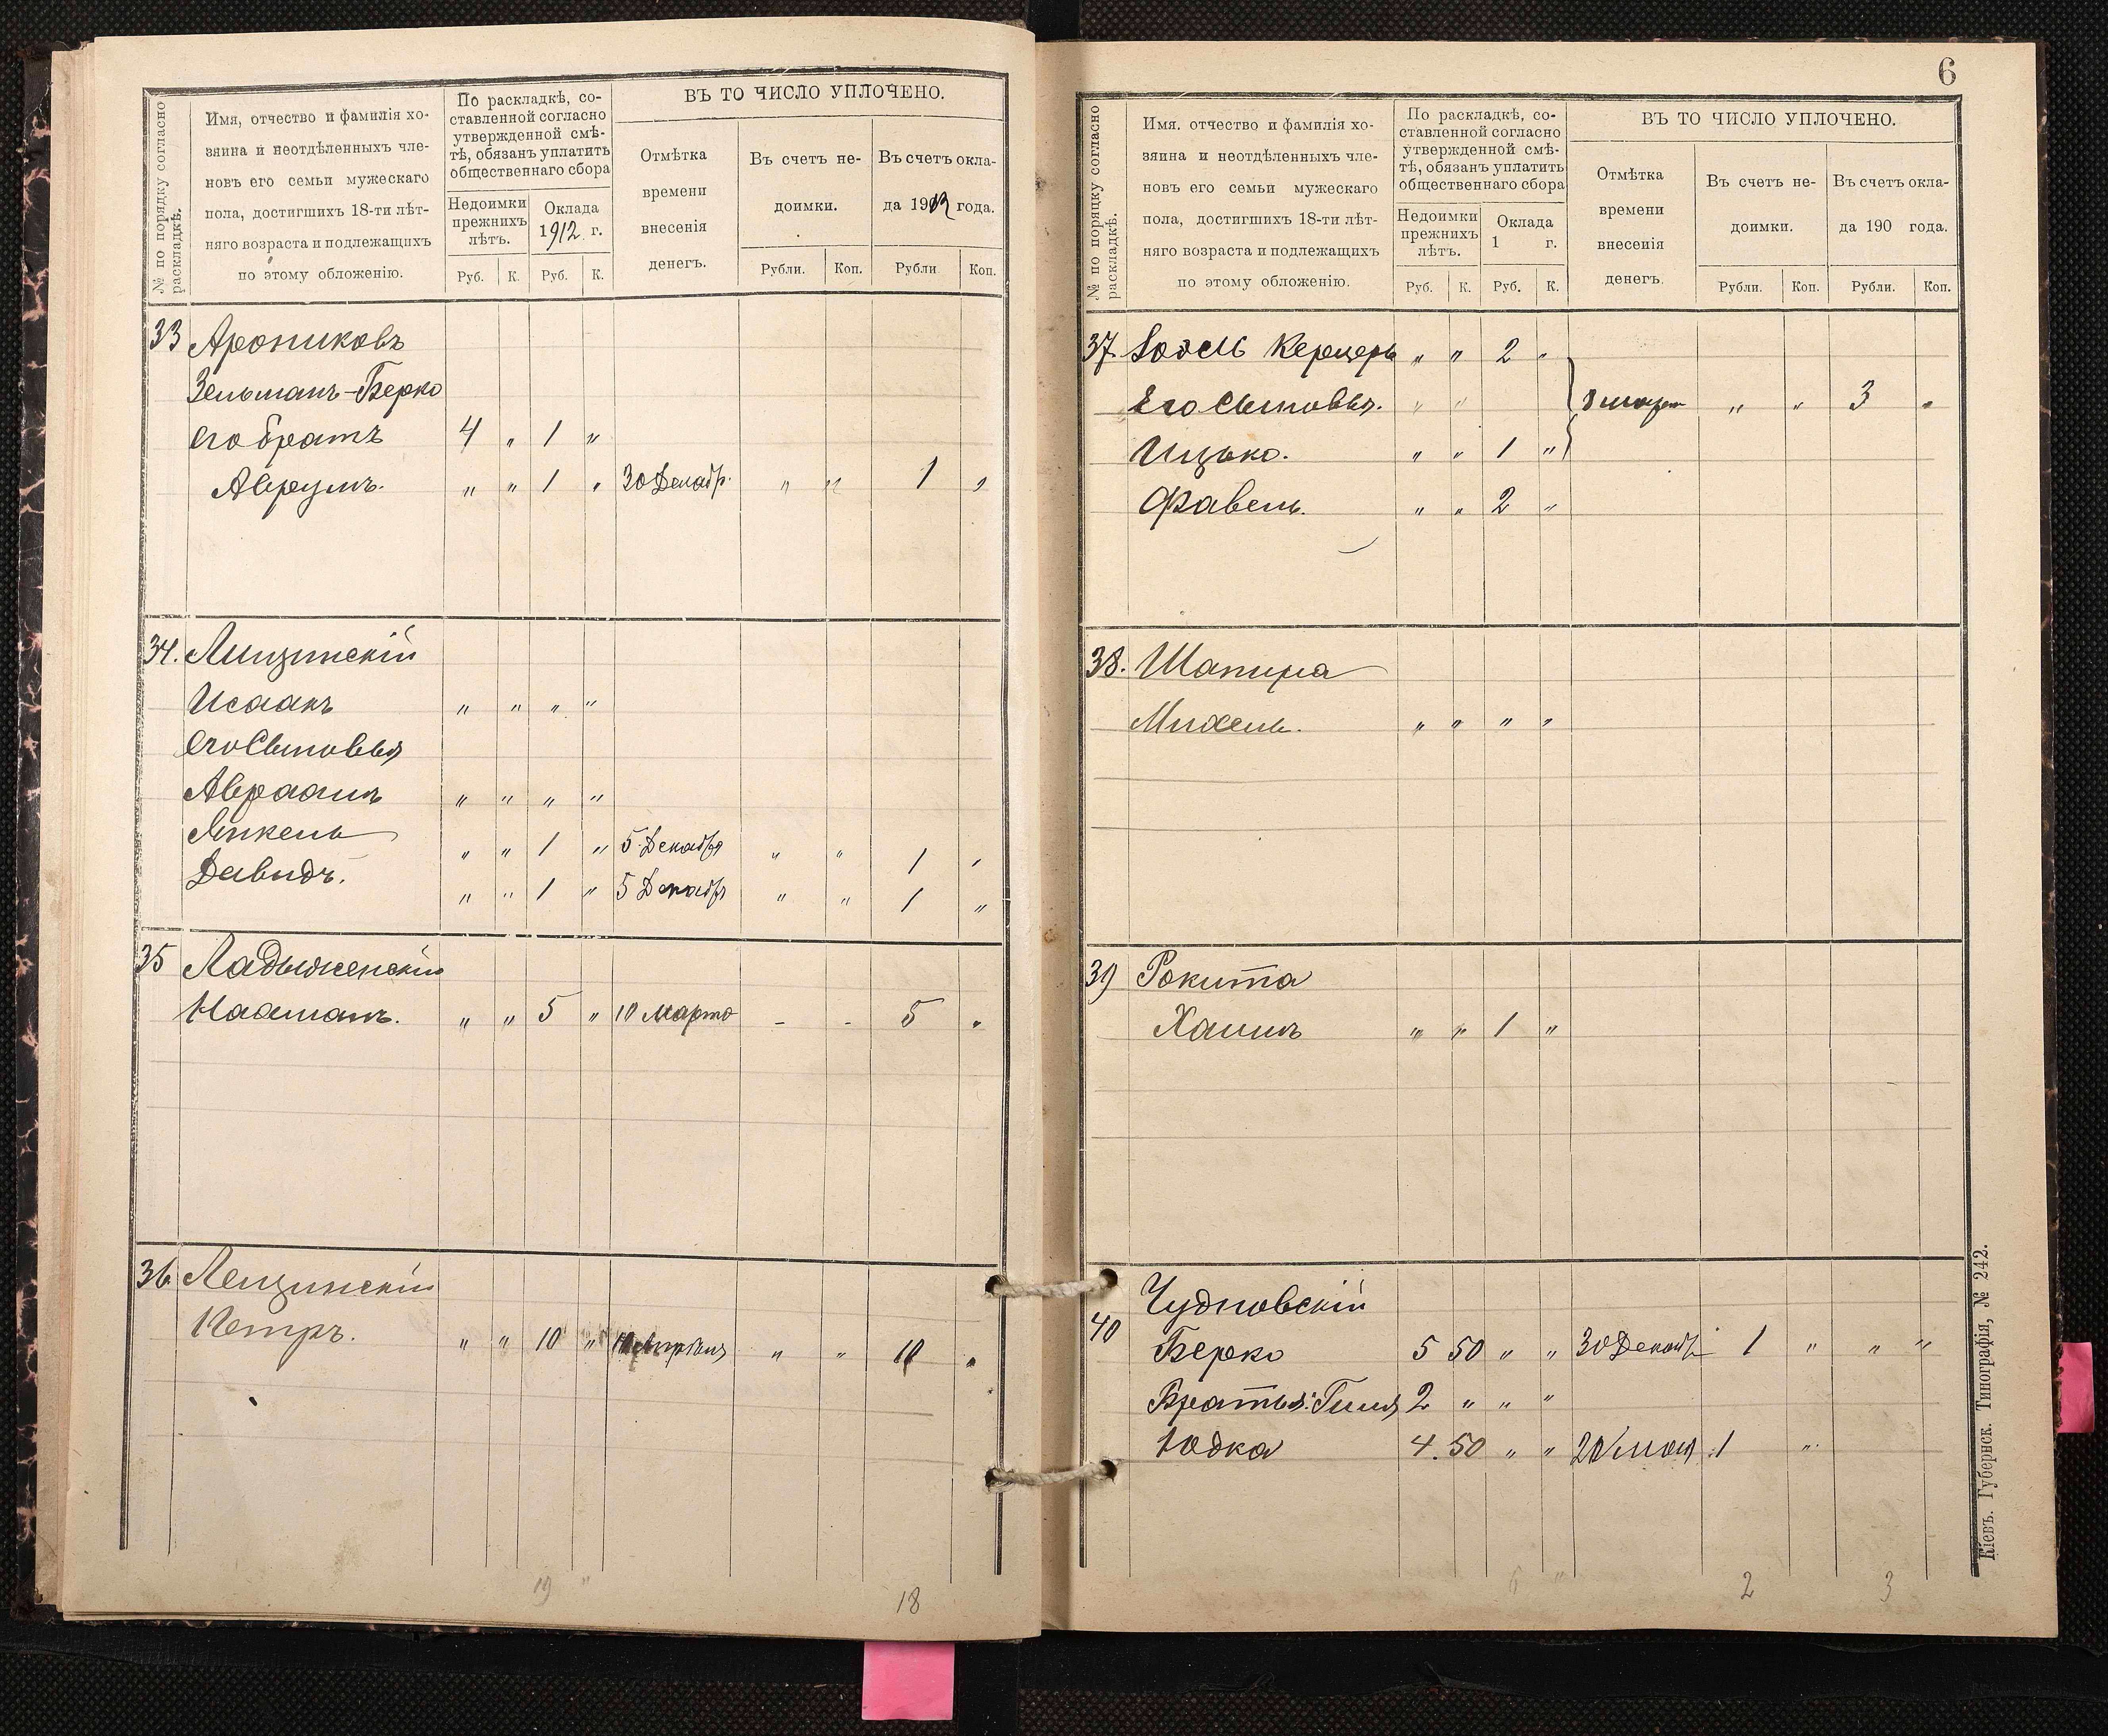 № по порядку согласно раскладкѣ.
Имя, отчество и фамилія хо-
зяина и неотдѣленныхъ чле-
новъ его семьи мужескаго
пола, достигшихъ 18-ти лѣт-
няго возраста и подлежащихъ
по этому обложенію.
По раскладкѣ, со-
ставленной согласно
утвержденной смѣ-
тѣ, обязанъ уплатить
общественнаго сбора
Недоимки
прежнихъ
лѣтъ.
Оклада
1912 г.
Руб. К. Руб. К.
ВЪ ТО ЧИСЛО УПЛОЧЕНО.
Отмѣтка
времени
внесенія
денегъ.
Въ счетъ не-
доимки.
Рубли. Коп.
Въ счетъ окла-
да 1912 года.
Рубли Коп.
33 Арониковъ
Зельманъ-Берко
его братъ 4 " 1 "
Аврумъ. " " 1 " 30 Декабр. " " 1 "
34. Лищинскій
Исаакъ " " " "
его Сыновья
Авраамъ " " " "
Янкель " " 1 " 5 Декабря " " 1 "
Давидъ. " " 1 " 5 Декабр " " 1 "
35 Ладыженскій
Нахманъ. " " 5 " 10 Марта - - 5 "
36 Лещинскій
Петръ. " " 10 " Апрѣля " " 10 "
19 " 18
6
№ по порядку согласно раскладкѣ.
Имя. отчество и фамилія хо-
зяина и неотдѣленныхъ чле-
новъ его семьи мужескаго
пола, достигшихъ 18-ти лѣт-
няго возраста и подлежащихъ
по этому обложенію.
По раскладкѣ, со-
ставленной согласно
утвержденной смѣ-
тѣ, обязанъ уплатить
общественнаго сбора
Недоимки
прежнихъ
лѣтъ.
Оклада
1 г.
Руб. К. Руб. К.
ВЪ ТО ЧИСЛО УПЛОЧЕНО.
Отмѣтка
времени
внесенія
денегъ.
Въ счетъ не-
доимки.
Рубли. Коп.
Въ счетъ окла-
да 190 года.
Рубли. Коп.
37. " " 2 "
Его Сыновья. " " " " 3 "
Ицько. " " 1 "
Файвель. " " 2 "
38. Шапира
Михель. " " " "
39 Рокита
Хаимъ " " 1 "
Чудновскій
40 Берко 5 50 " " 30 Декабр 1 " " "
Братья: 2 " " "
Юдка 4.50 " " 20 мая 1 "
6 " 2 3
Кіевъ. Губернск. Типографія, № 242.